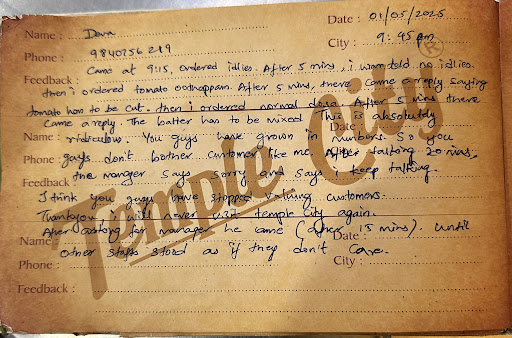 Name : Devn Date : 01/05/2025
Phone : 9840756219 City : 9:45am
Feedback : Came at 9:15, ordered idlies. After 5 mins, i was told no idlies.
then i ordered tomato oothappam. After 5 mins, there came a reply saying
tomato has to be cut. then i ordered normal dosa. After 5 mins there
came a reply. The batter has to be mixed. This is absolutely
Name : ridiculous. You guys have grown in numbers. So you Date :
Phone : guys don't bother customer like me. After talking 20 mins, City :
Feedback : the manager says sorry and says i keep talking.
I think you guys have stopped valuing customers.
Thankyou, I will never visit temple city again.
After asking for manager he came (after 15 mins). until
Name : other staffs stood as if they don't care. Date :
Phone : City :
Feedback :
Temple City